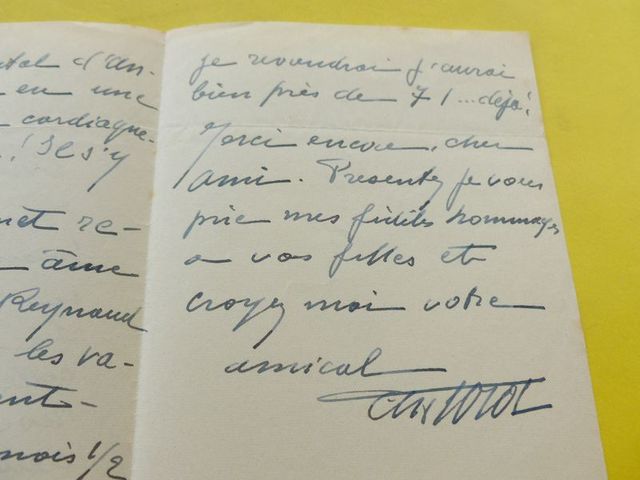 d'un-
en une
cardiaque.
! Il s'y
met re-
âme
Reynaud
les va-
ent-
mois 1/2
je reviendrai j'aurai
bien près de 71... déjà!
Merci encore, cher
ami. Présentez je vous
prie mes fidèles hommages
a vos filles et
croyez moi votre
amical